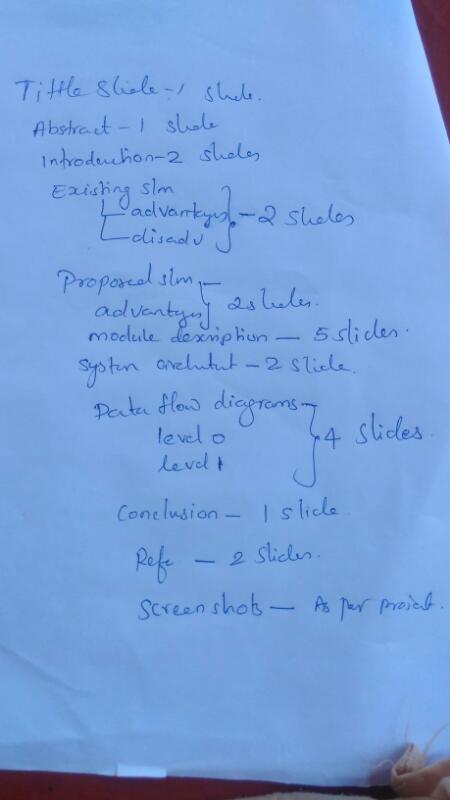 Tittle Slide - 1 slide.
Abstract - 1 slide
Introduction - 2 slides
Existing s/m
advantages
disadv - 2 slides
Proposed s/m
advantages 2 slides.
module description - 5 slides.
system - 2 slide.
Data flow diagrams
level 0
level 1 4 slides.
Conclusion - 1 slide.
Refe - 2 slides.
Screenshots - As per project.